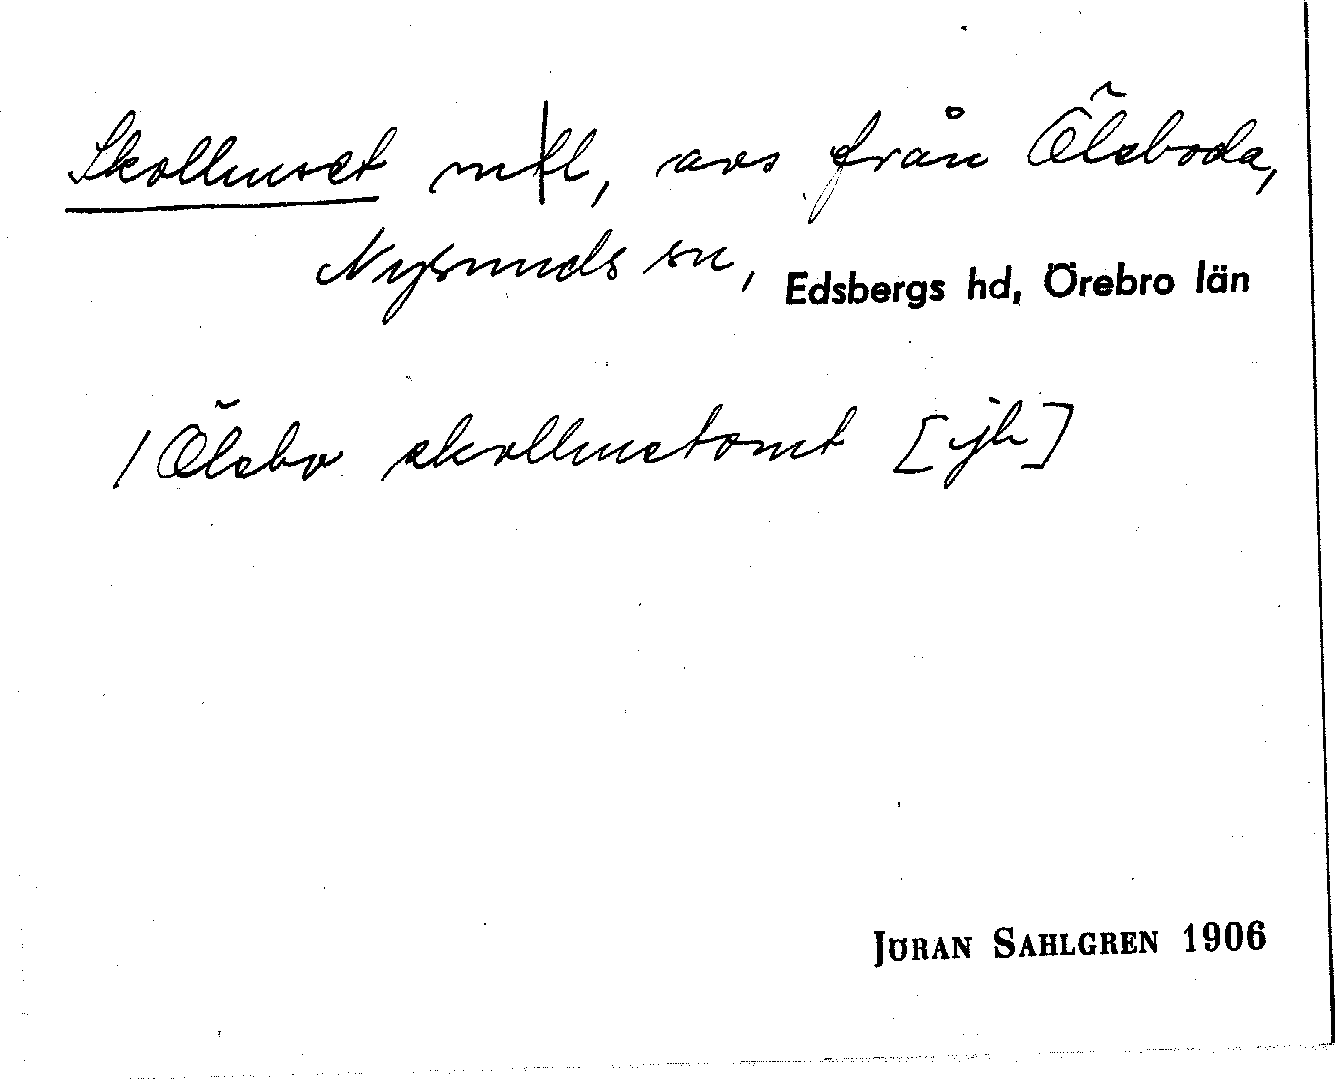 Skollmset mtl, avs från Ölsboda,
Nysunds sn, Edsbergs hd, Örebro län
/Ölsbo skollmstomt [jb]
JÖRAN SAHLGREN 1906